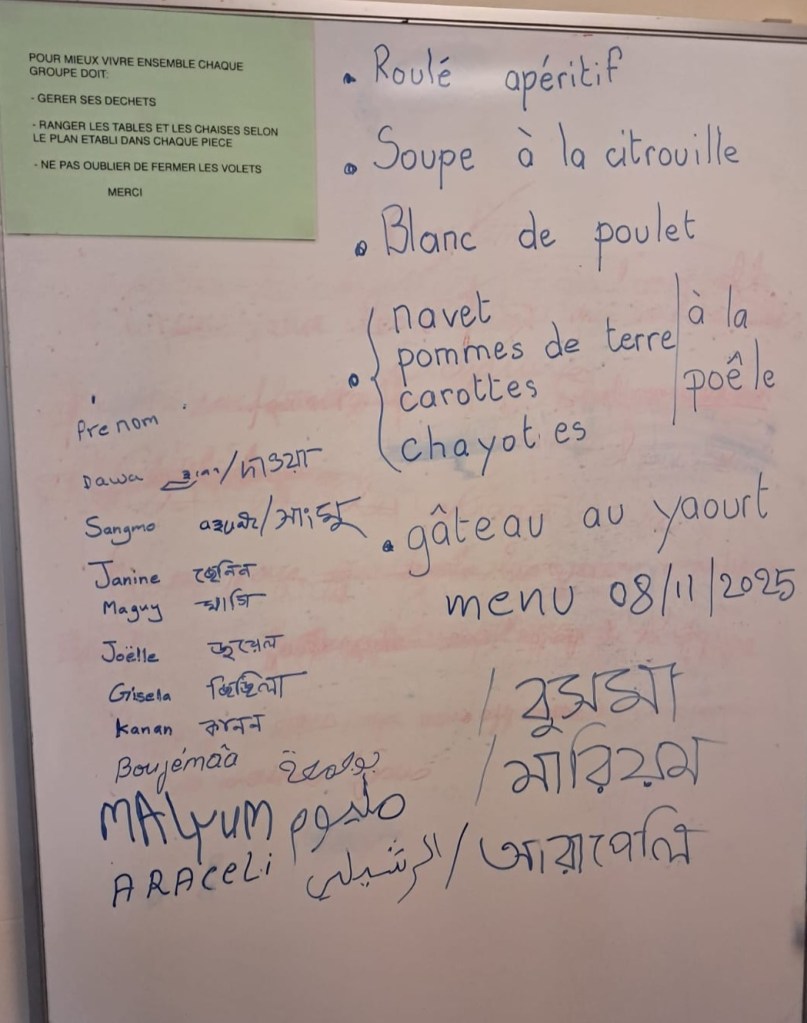 POUR MIEUX VIVRE ENSEMBLE CHAQUE
GROUPE DOIT:
- GERER SES DECHETS
- RANGER LES TABLES ET LES CHAISES SELON
LE PLAN ETABLI DANS CHAQUE PIECE
- NE PAS OUBLIER DE FERMER LES VOLETS
MERCI
• Roulé apéritif
• Soupe à la citrouille
• Blanc de poulet
• navet
pommes de terre
carottes
chayotes
à la
poêle
• gâteau au yaourt
menu 08/11/2025
Prenom
Dawa /দাওয়া
Sangmo
Janine জেনিন
Maguy মাগি
Joëlle জুয়েল
Gisela জিজিলা
Kanan কানন
Boujémâa بوجمعة / বুমমা
MALYUM مليوم / মারিয়ম
ARACELi الرشيلي / আরাসেলি